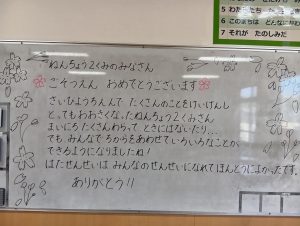 5 わたしたち
6 このまちは どんなにかわ
7 それが たのしみだ
ねんちょう2くみのみなさん
ごそつえん おめでとうございます
さいしょうえんで たくさんのことをけいけんし
とってもおおきくなったねんちょう2くみさん
まいにち たくさんわらって ときにはないたり…
でも みんなで ちからをあわせていろいろなことが
できるようになりましたね!
はたせんせいは みんなのせんせいになれてほんとうによかったです。
ありがとう!!